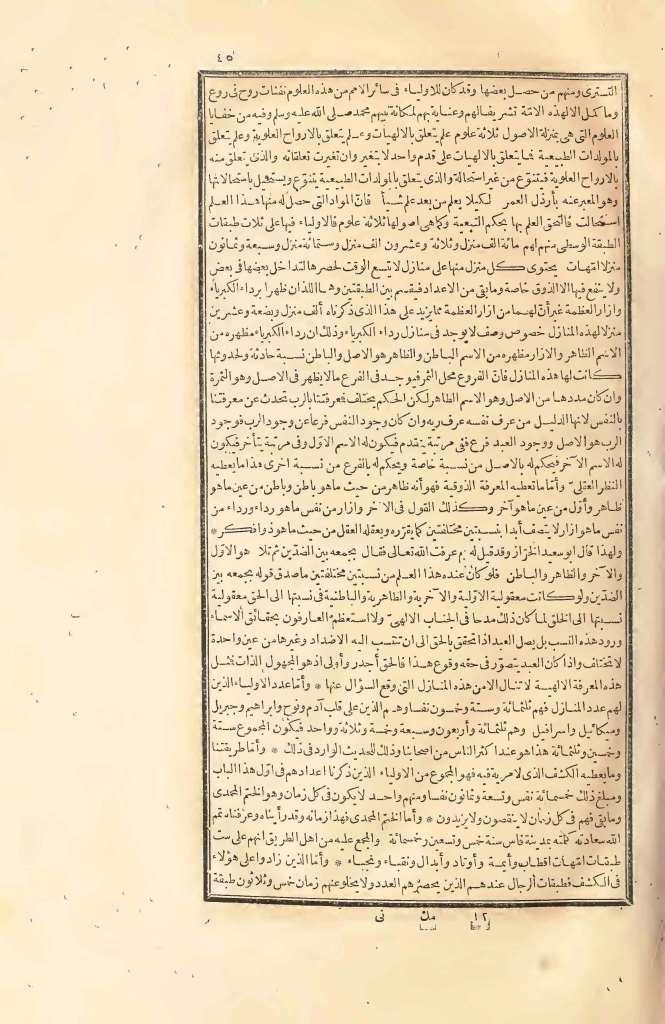 ٤٥
التسترى ومنهم من حصل بعضها وقد كان للاولياء فى سائر الامم من هذه العلوم نفثات روح فى روع
وما كمل الا لهذه الامة تشريفا لهم وعناية بهم لمكانة نبيهم محمد صلى الله عليه وسلم وفيه من خفايا
العلوم التى هى بمنزلة الاصول ثلاثة علوم علم يتعلق بالالهيات وعلم يتعلق بالارواح العلوية وعلم يتعلق
بالمولدات الطبيعية فما يتعلق بالالهيات على قدم واحد لا يتغير وان تغيرت تعلقاته والذى يتعلق منه
بالارواح العلوية فيتنوع من غير استحالة والذى يتعلق بالمولدات الطبيعية يتنوع ويستحيل باستحالاتها
وهو المعبر عنه بأرذل العمر لكيلا يعلم من بعد علم شيأ فان المواد التى حصل له منها هذا العلم
استحالت فالتحق العلم بها بحكم التبعية وكما هى اصولها ثلاثة علوم فالاولياء فيها على ثلاث طبقات
الطبقة الوسطى منهم لهم مائة الف منزل وثلاثة وعشرون الف منزل وستمائة منزل وسبعة وثمانون
منزلا امهات يحتوى كل منزل منها على منازل لا يتسع الوقت لحصرها لتداخل بعضها فى بعض
ولا ينفع فيها الا الذوق خاصة وما بقى من الاعداد فيقسم بين الطبقتين وهما اللذان ظهرا برداء الكبرياء
وازار العظمة غير أن لهما من ازار العظمة مما يزيد على هذا الذى ذكرناه ألف منزل وبضعة وعشرين
منزلا لهذه المنازل خصوص وصف لا يوجد فى منازل رداء الكبرياء وذلك ان رداء الكبرياء مظهره من
الاسم الظاهر والازار مظهره من الاسم الباطن والظاهر هو الاصل والباطن نسبة حادثة ولحدوثها
كانت لها هذه المنازل فان الفروع محل الثمر فيوجد فى الفرع ما لا يظهر فى الاصل وهو الثمرة
وان كان مددها من الاصل وهو الاسم الظاهر لكن الحكم يختلف فمعرفتنا بالرب تحدث عن معرفتنا
بالنفس لانها الدليل من عرف نفسه عرف ربه وان كان وجود النفس فرعا عن وجود الرب فوجود
الرب هو الاصل ووجود العبد فرع ففى مرتبة يتقدم فيكون له الاسم الاول وفى مرتبة يتأخر فيكون
له الاسم الآخر فيحكم له بالاصل من نسبة خاصة ويحكم له بالفرع من نسبة اخرى هذا ما يعطيه
النظر العقلى وأما ما تعطيه المعرفة الذوقية فهو أنه ظاهر من حيث ما هو باطن وباطن من عين ما هو
ظاهر وأول من عين ما هو آخر وكذلك القول فى الآخر وازار من نفس ما هو رداء ورداء من
نفس ما هو ازار لا يتصف أبدا بنسبتين مختلفتين كما يقرره ويعقله العقل من حيث ما هو ذو افكر *
ولهذا قال ابو سعيد الخراز وقد قيل له بم عرفت الله تعالى فقال بجمعه بين الضدين ثم تلا هو الاول
والآخر والظاهر والباطن فلو كان عنده هذا العلم من نسبتين مختلفتين ما صدق قوله بجمعه بين
الضدين ولو كانت معقولية الاولية والآخرية والظاهرية والباطنية فى نسبتها الى الحق معقولية
نسبتها الى الخلق لما كان ذلك مدحا فى الجناب الالهى ولا استعظم العارفون بحقائق الاسماء
ورود هذه النسب بل يصل العبد اذا تحقق بالحق الى ان تنتسب اليه الاضداد وغيرها من عين واحدة
لا تختلف واذا كان العبد يتصور فى حقه وقوع هذا فالحق أجدر وأولى اذ هو المجهول الذات فمثل
هذه المعرفة الالهية لا تنال الا من هذه المنازل التى وقع السؤال عنها * وأما عدد الاولياء الذين
لهم عدد المنازل فهم ثلثمائة وستة وخمسون نفسا وهم الذين على قلب آدم ونوح وابراهيم وجبريل
وميكائيل واسرافيل وهم ثلثمائة وأربعون وسبعة وخمسة وثلاثة وواحد فيكون المجموع ستة
وخمسين وثلثمائة هذا هو عند اكثر الناس من اصحابنا وذلك للحديث الوارد فى ذلك * وأما طريقتنا
وما يعطيه الكشف الذى لا مرية فيه فهو المجموع من الاولياء الذين ذكرنا اعدادهم فى اول هذا الباب
ومبلغ ذلك خمسمائة نفس وتسعة وثمانون نفسا ومنهم واحد لا يكون فى كل زمان وهو الختم المحمدى
وما بقى فهم فى كل زمان لا ينقصون ولا يزيدون * وأما الختم المحمدى فهذا زمانه وقد رأيناه وعرفناه تمم
الله سعادته كلمته بمدينة فاس سنة خمس وتسعين وخمسمائة والمجمع عليه من اهل الطريق انهم على ست
طبقات امهات اقطاب وأيمة وأوتاد وأبدال ونقباء ونجباء * وأما الذين زادوا على هؤلاء
فى الكشف فطبقات الرجال عندهم الذين يحصرهم العدد ولا يخلو عنهم زمان خمس وثلاثون طبقة
١٢ مك نى